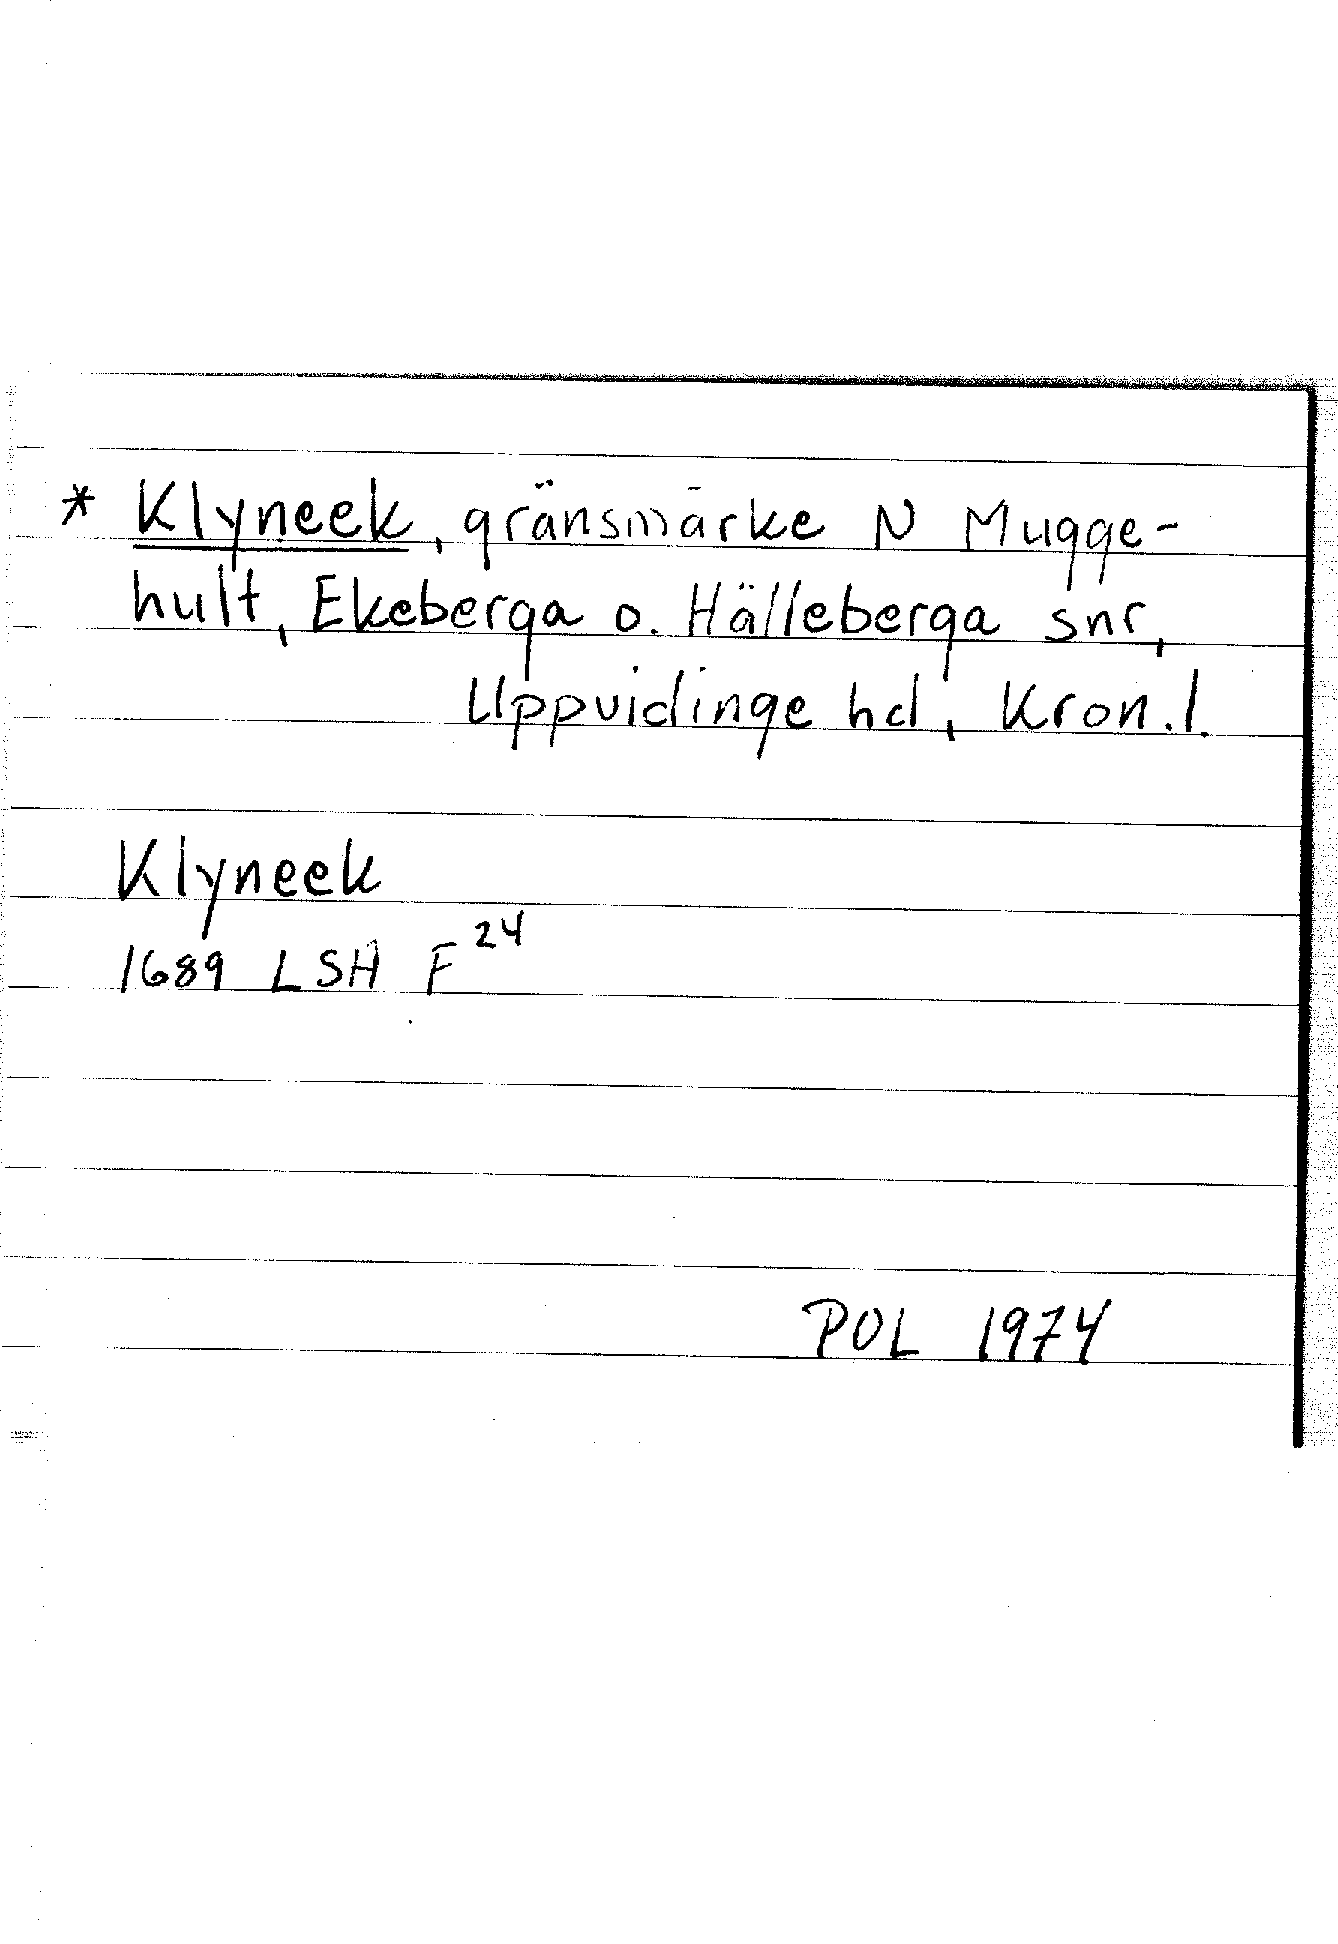 * Klyneek, gränsmärke N Mugge-
hult, Ekeberga o. Hälleberga snr,
Uppvidinge hd, Kron.l.
Klyneek
1689 LSH F 24
POL 1974